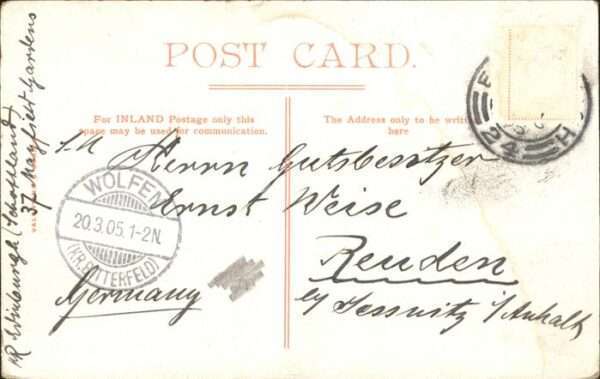 POST CARD.
For INLAND Postage only this
space may be used for communication.
The Address only to be
here
Herrn Gutsbesitzer
Ernst Weise
Reuden
by Jessnitz i/Anhalt
Germany
WOLFEN
20.3.05.1-2N.
(KR. BITTERFELD)
24 H
Edinburgh (Schottland)
37 Mayfield Gardens